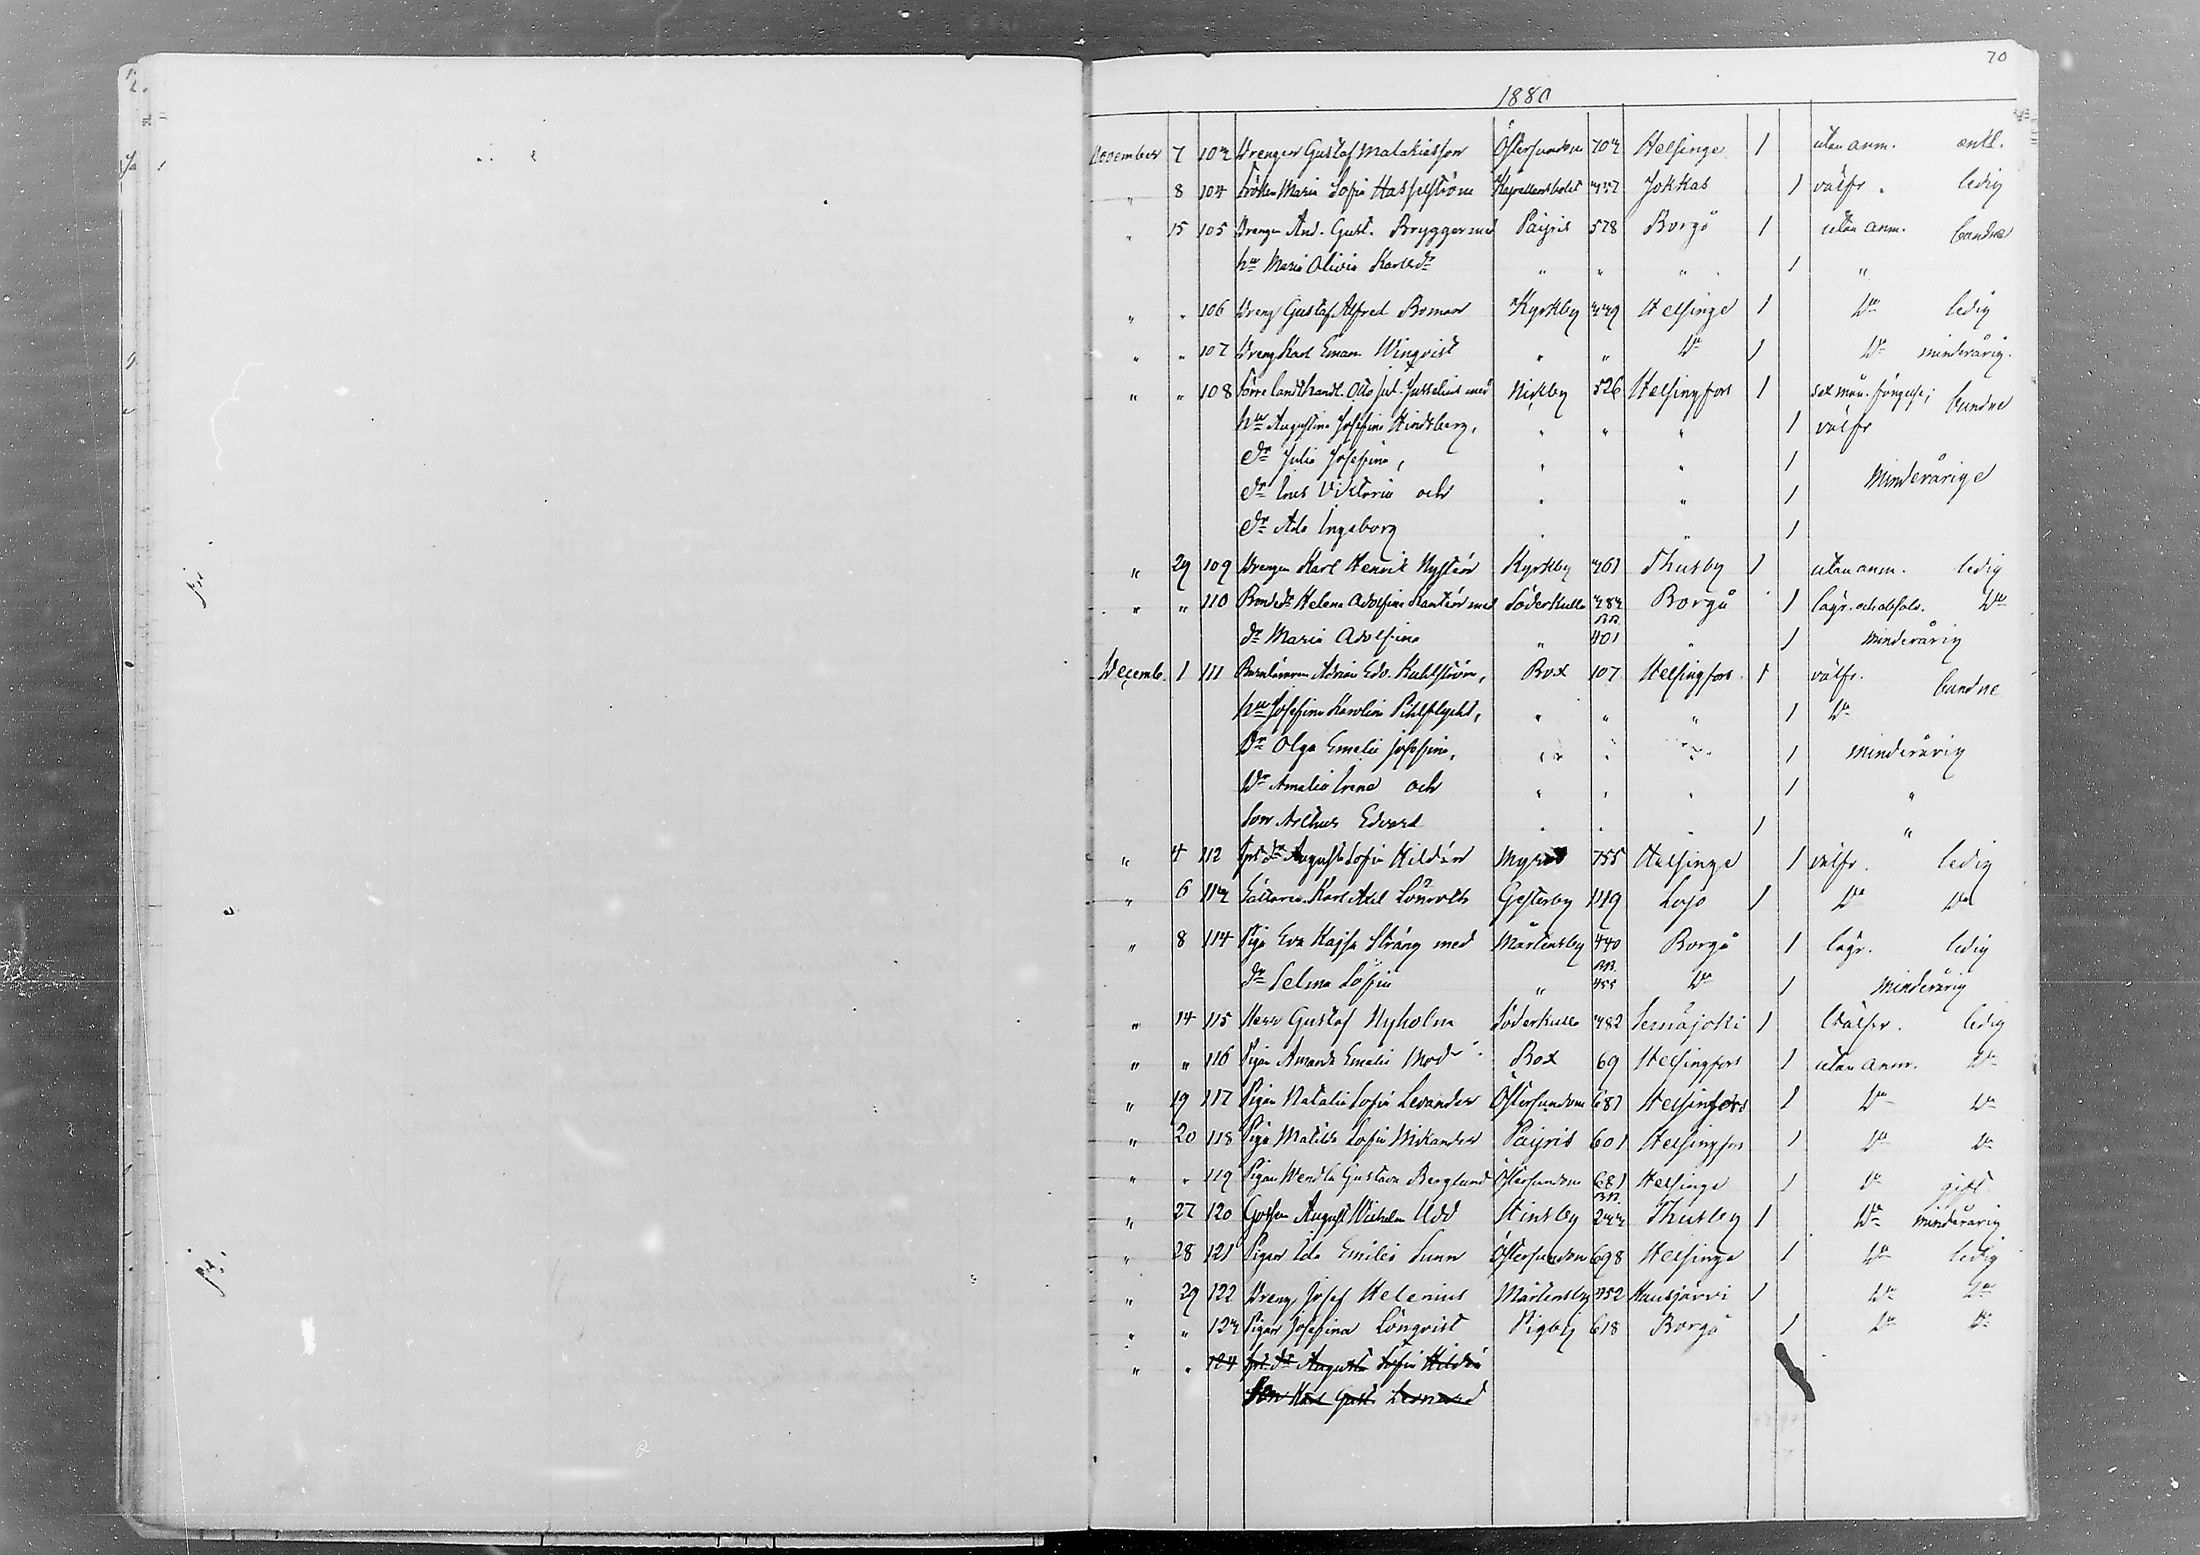 70
1880
November 7 103 Drengen Gustaf Malakiasson Östersundom 703 Helsinge 1 utan anm. enkl.
" 8 104 Fröken Maria Sofia Hasselström Kapellansbolet 457 Jokkas 1 välfr. ledig
" 15 105 Drengen And. Gust. Brygger med Paipis 578 Borgå 1 utan anm. bundne
hu Maria Olivia Karlsdr " " " 1 "
" " 106 Dreng Gustaf Alfred Boman Kyrkby 449 Helsinge 1 Do ledig
" " 107 Dreng Karl Eman. Winqvist " " Do 1 Do minderårig.
" " 108 Förre landthandl. Otto Jul. Juselius med Nickby 526 Helsingfors 1 sex mån. fängelse; bundne
hu Augustina Josefina Hindsberg, " " " 1 välfr
dr Julia Josefina, " " 1
dr Ines Viktoria och " " 1 Minderårige
dr Ada Ingeborg " " 1
" 29 109 Drengen Karl Henrik Nyström Kyrkby 461 Thusby 1 utan anm. ledig
" " 110 Bondedr Helena Adolfina med Söderkulla 484 Borgå 1 lagr. och absolv. Do
dr Maria Adolfina " B.B. 401 " 1 minderårig
Decemb. 1 111 Barnläraren Adrian Edv. Kuhlström, Box 107 Helsingfors 1 välfr. bundne
hu Josefina Karolina Pihlflyckt, " " " 1 Do
Dr Olga Emelie Josefina, " " " 1 minderårig
Dr Amalia Irene och " " " 1 "
Son Arthur Edvard " " " 1 "
" 4 112 Dr Augusta Sofia Hildén Myras 755 Helsinge 1 välfr. ledig
" 6 113 Karl Axel Lönroth Gesterby 1119 Lojo 1 Do Do
" 8 114 Piga Eva Kajsa Sträng med Mårtensby 440 Borgå 1 lagr. ledig
dr Selma Sofia " B.B. 455 Do 1 Minderårig
" 14 115 Herr Gustaf Nyholm Söderkulla 482 Ilmajoki 1 Välfr. ledig
" " 116 Pigan Amanda Emelie Box 69 Helsingfors 1 utan anm. Do
" 19 117 Pigan Natalia Sofia Levander Östersundom 687 Helsingfors 1 Do Do
" 20 118 Piga Matilda Sofia Wikander Paipis 601 Helsingfors 1 Do Do
" " 119 Pigan Wendla Gustava Berglund Östersundom 681 Helsinge 1 Do gift
" 27 120 Gossen August Wilhelm Udd Hindsby B.B. 244 Thusby 1 Do minderårig
" 28 121 Pigan Ida Emilia Sunn Östersundom 698 Helsinge 1 Do ledig
" 29 122 Dreng Josef Helenius Mårtensby 452 Hausjärvi 1 Do Do
" " 123 Pigan Josefina Lönqvist Pigby 618 Borgå 1 Do Do
" " 124 dr Augusta Sofia Hildén
Son Karl Gust. Leonard